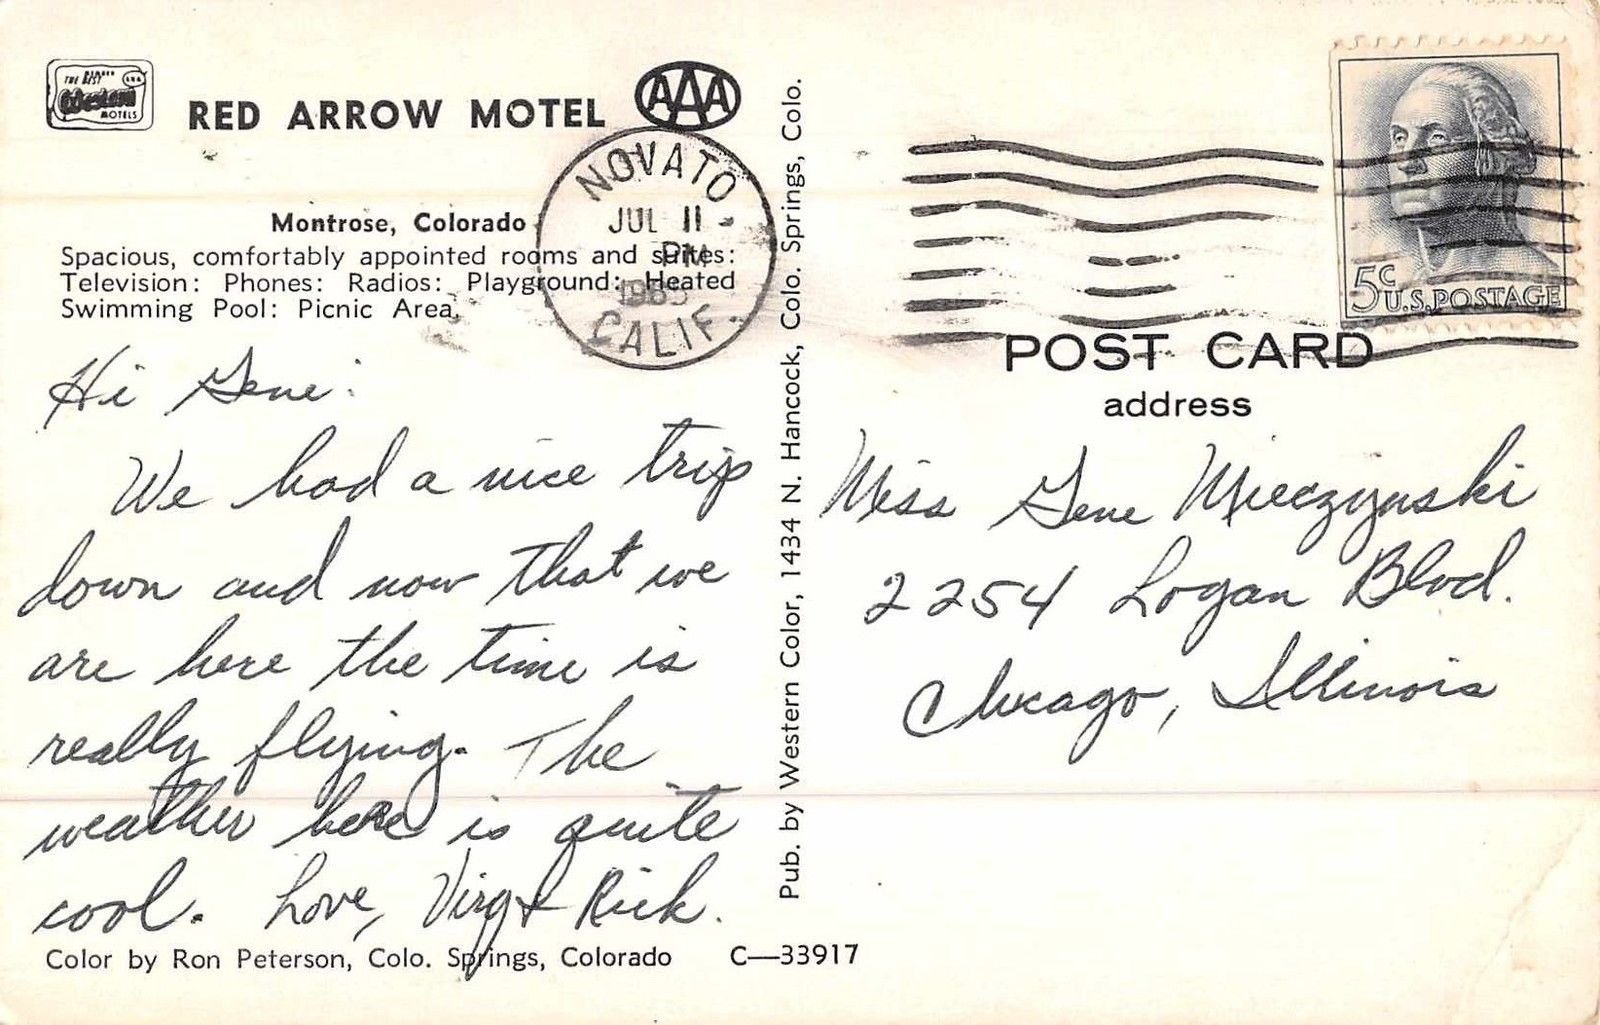 THE BEST
Western
MOTELS
RED ARROW MOTEL
AAA
Montrose, Colorado
Spacious, comfortably appointed rooms and suites:
Television: Phones: Radios: Playground: Heated
Swimming Pool: Picnic Area.
NOVATO
JUL 11
PM
CALIF.
Hi Gene:
We had a nice trip
down and now that we
are here the time is
really flying. The
weather here is quite
cool. Love, Virg & Rick.
Color by Ron Peterson, Colo. Springs, Colorado C—33917
Pub. by Western Color, 1434 N. Hancock, Colo. Springs, Colo.
5c
U.S. POSTAGE
POST CARD
address
Miss Gene Mieczynski
2254 Logan Blvd.
Chicago, Illinois